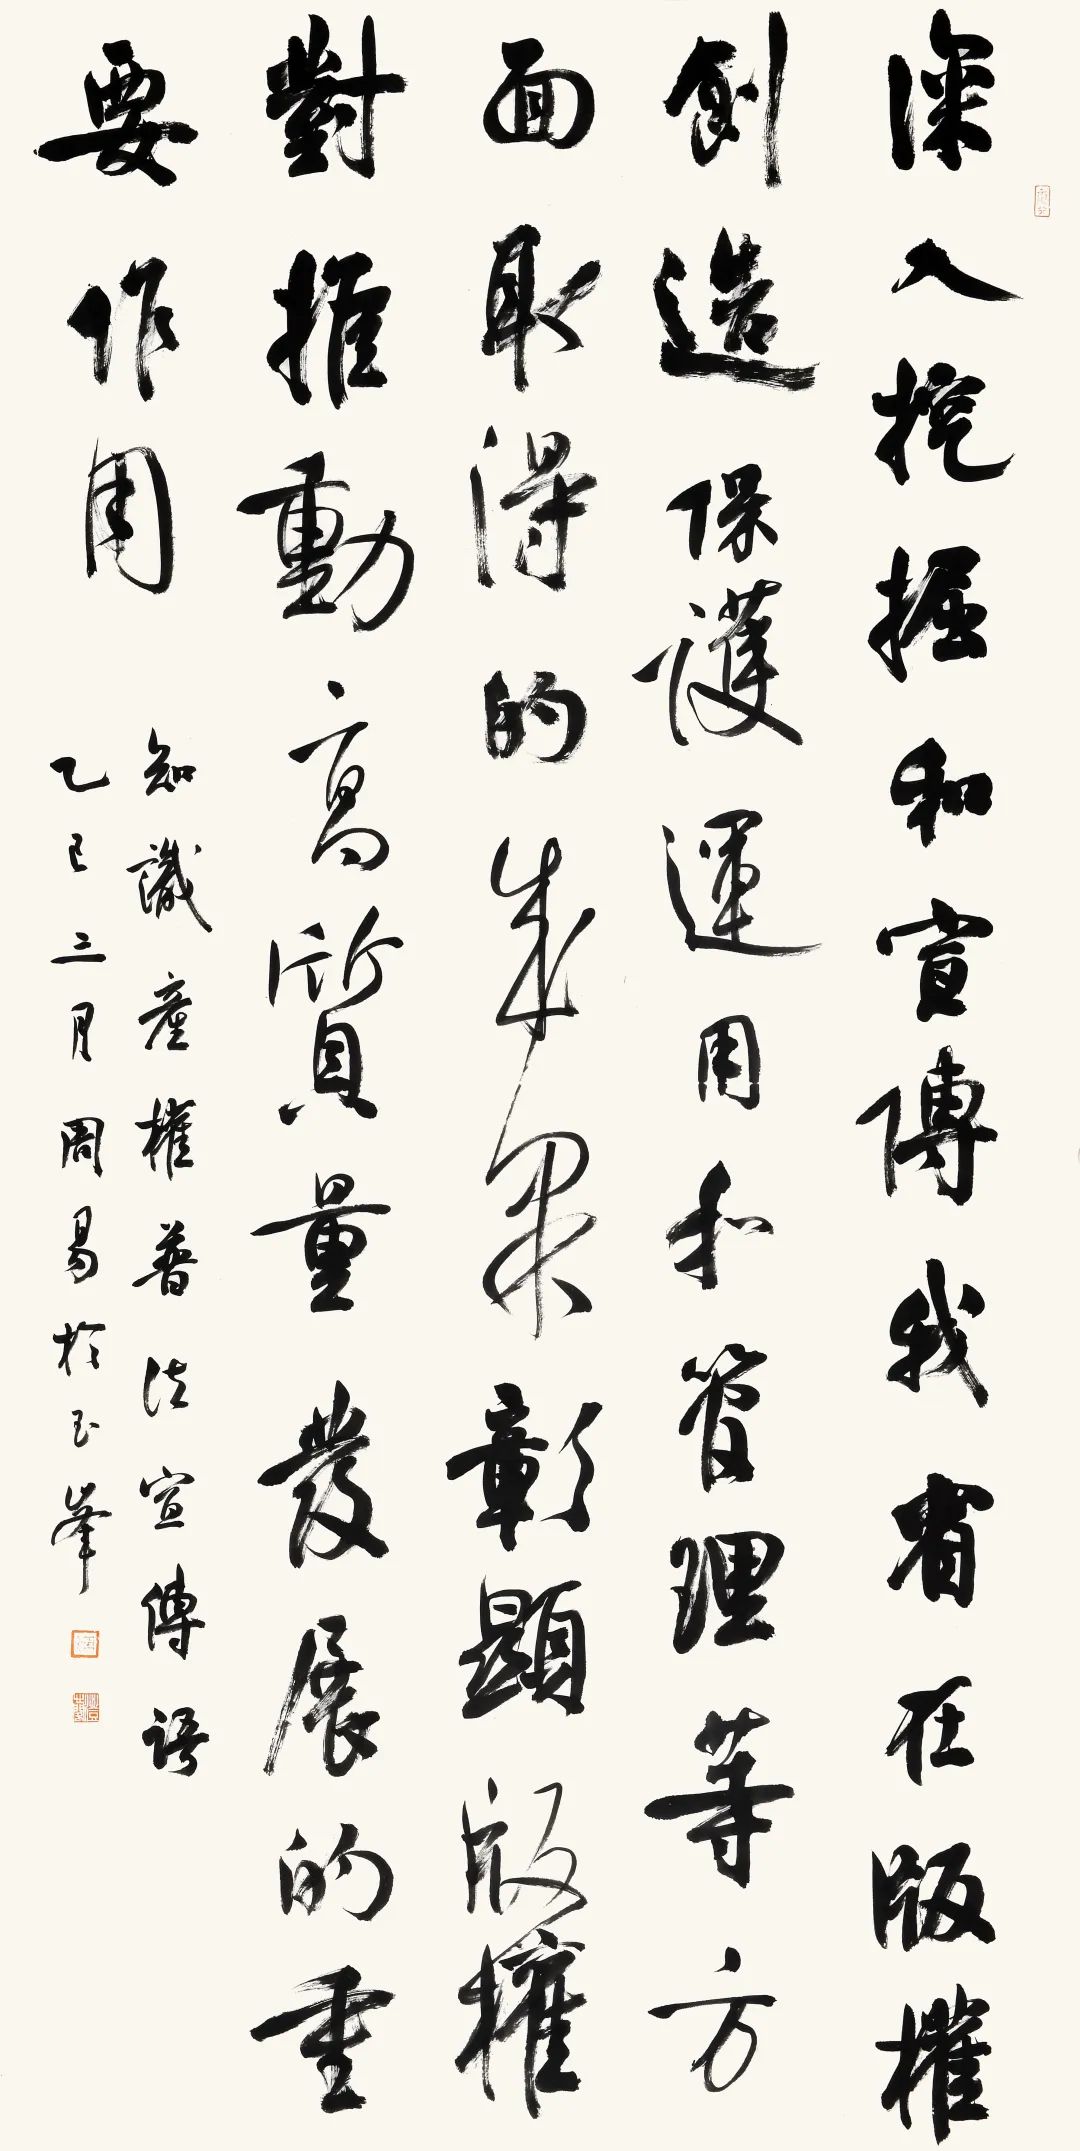 深入挖掘和宣傳我省在版權
創造保護運用和管理等方
面取得的成果彰顯版權
對推動高質量發展的重
要作用
知識產權普法宣傳語
乙巳三月周易於玉峯